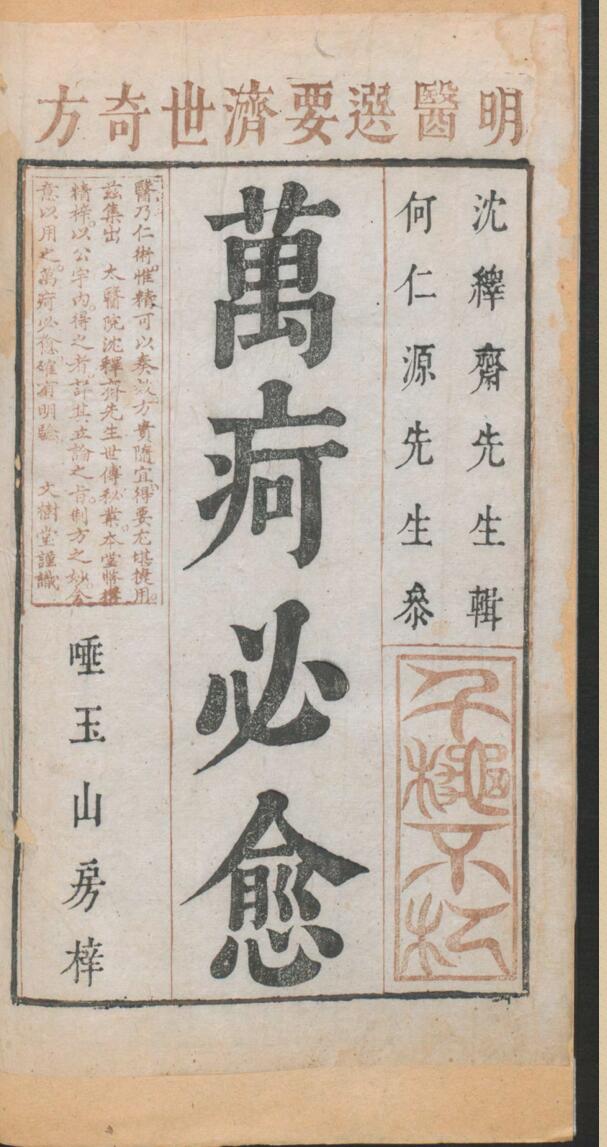 明醫選要濟世奇方
沈繹齋先生輯
何仁源先生叅
千樞不朽
萬疴必愈
醫乃仁術惟精可以奏效方貴隨宜得要尤堪捷用
茲集出 太醫院沈繹斎先生世傳秘業本堂幣搆
精槧以公宇內得之者詳其立論之旨制方之妙会
意以用之萬疴必愈確有明驗 文樹堂謹識
唾玉山房梓